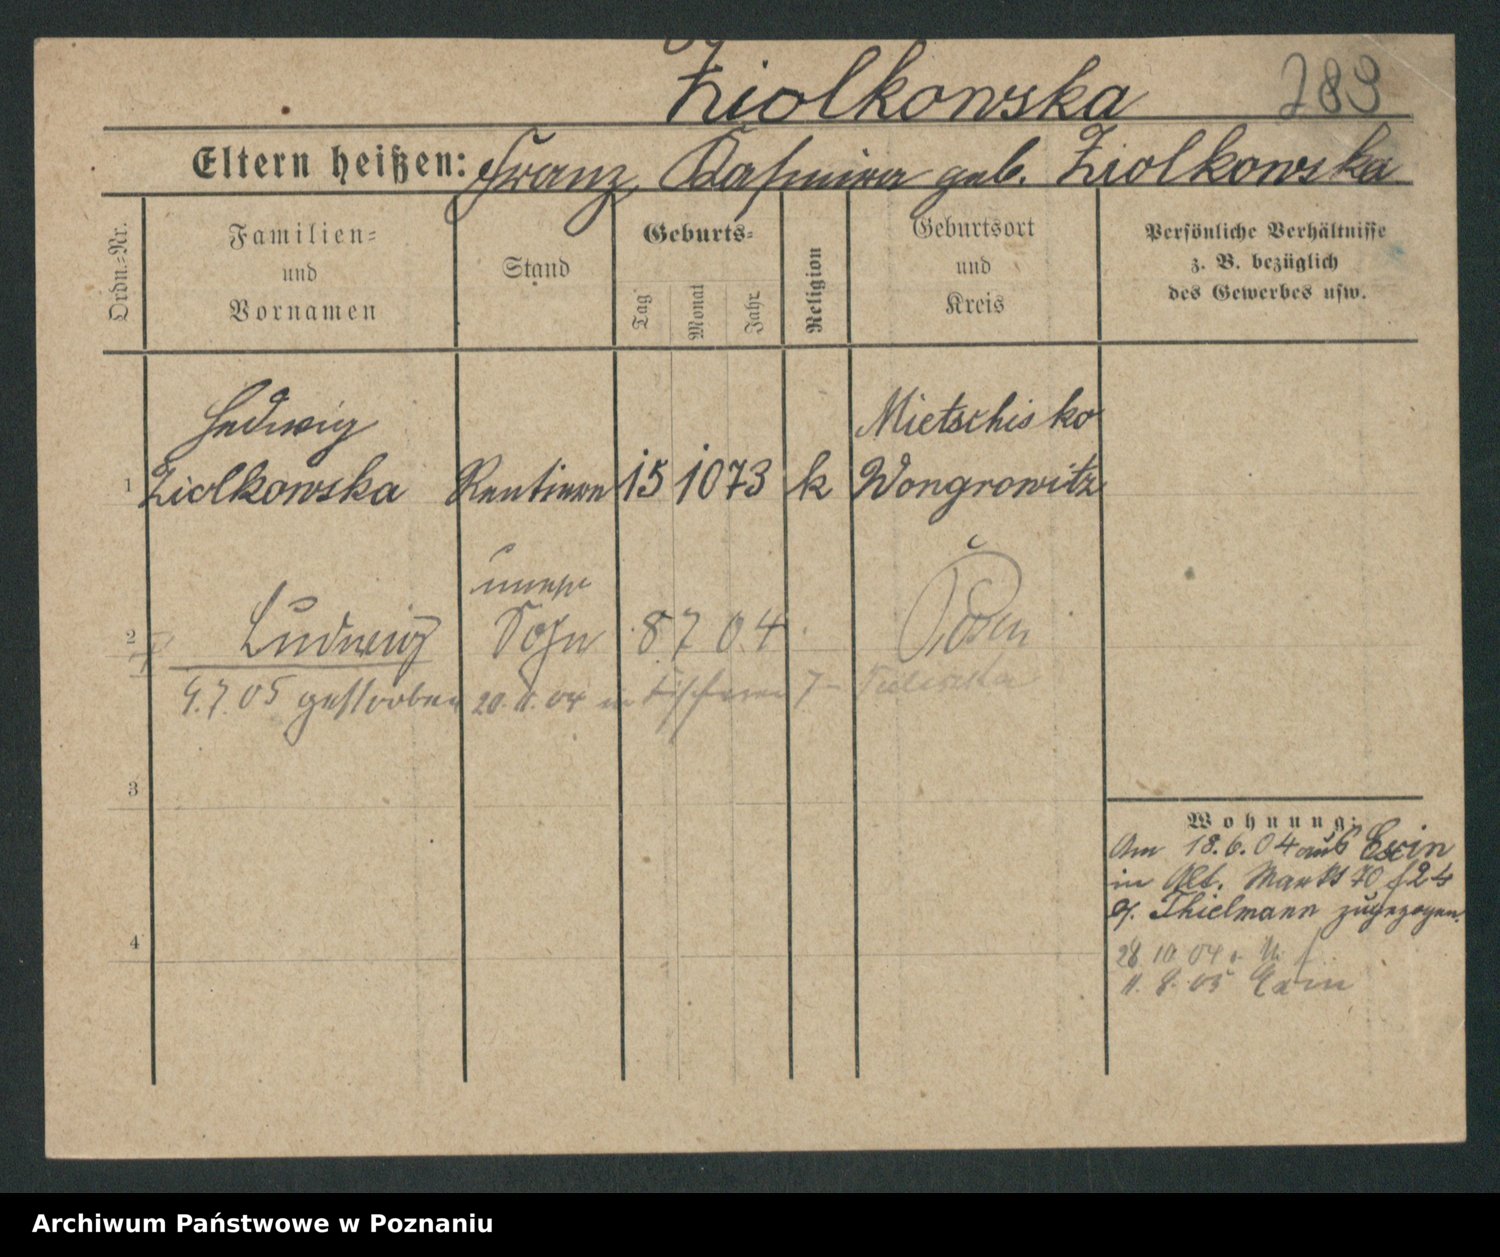 Ziolkowska 289
Eltern heißen: Franz, Kasimira geb. Ziolkowska
Ordn.-Nr.
Familien-
und
Vornamen
Stand
Geburts-
Tag
Monat
Jahr
Religion
Geburtsort
und
Kreis
Persönliche Verhältnisse
z. B. bezüglich
des Gewerbes usw.
Hedwig Mietschisko
1 Ziolkowska Rentiere 15 10 73 k Wongrowitz
unehe
2 Ludwig Sohn 8 7 04 Posen
9.7.05 gestorben 20.11.04 in
3
Wohnung:
Am 18.6.04 aus Exin
in Alt. Markt 70 f 24
b/. Thielmann zugezogen.
4
28 10 04
11. 8. 05 Exin
Archiwum Państwowe w Poznaniu